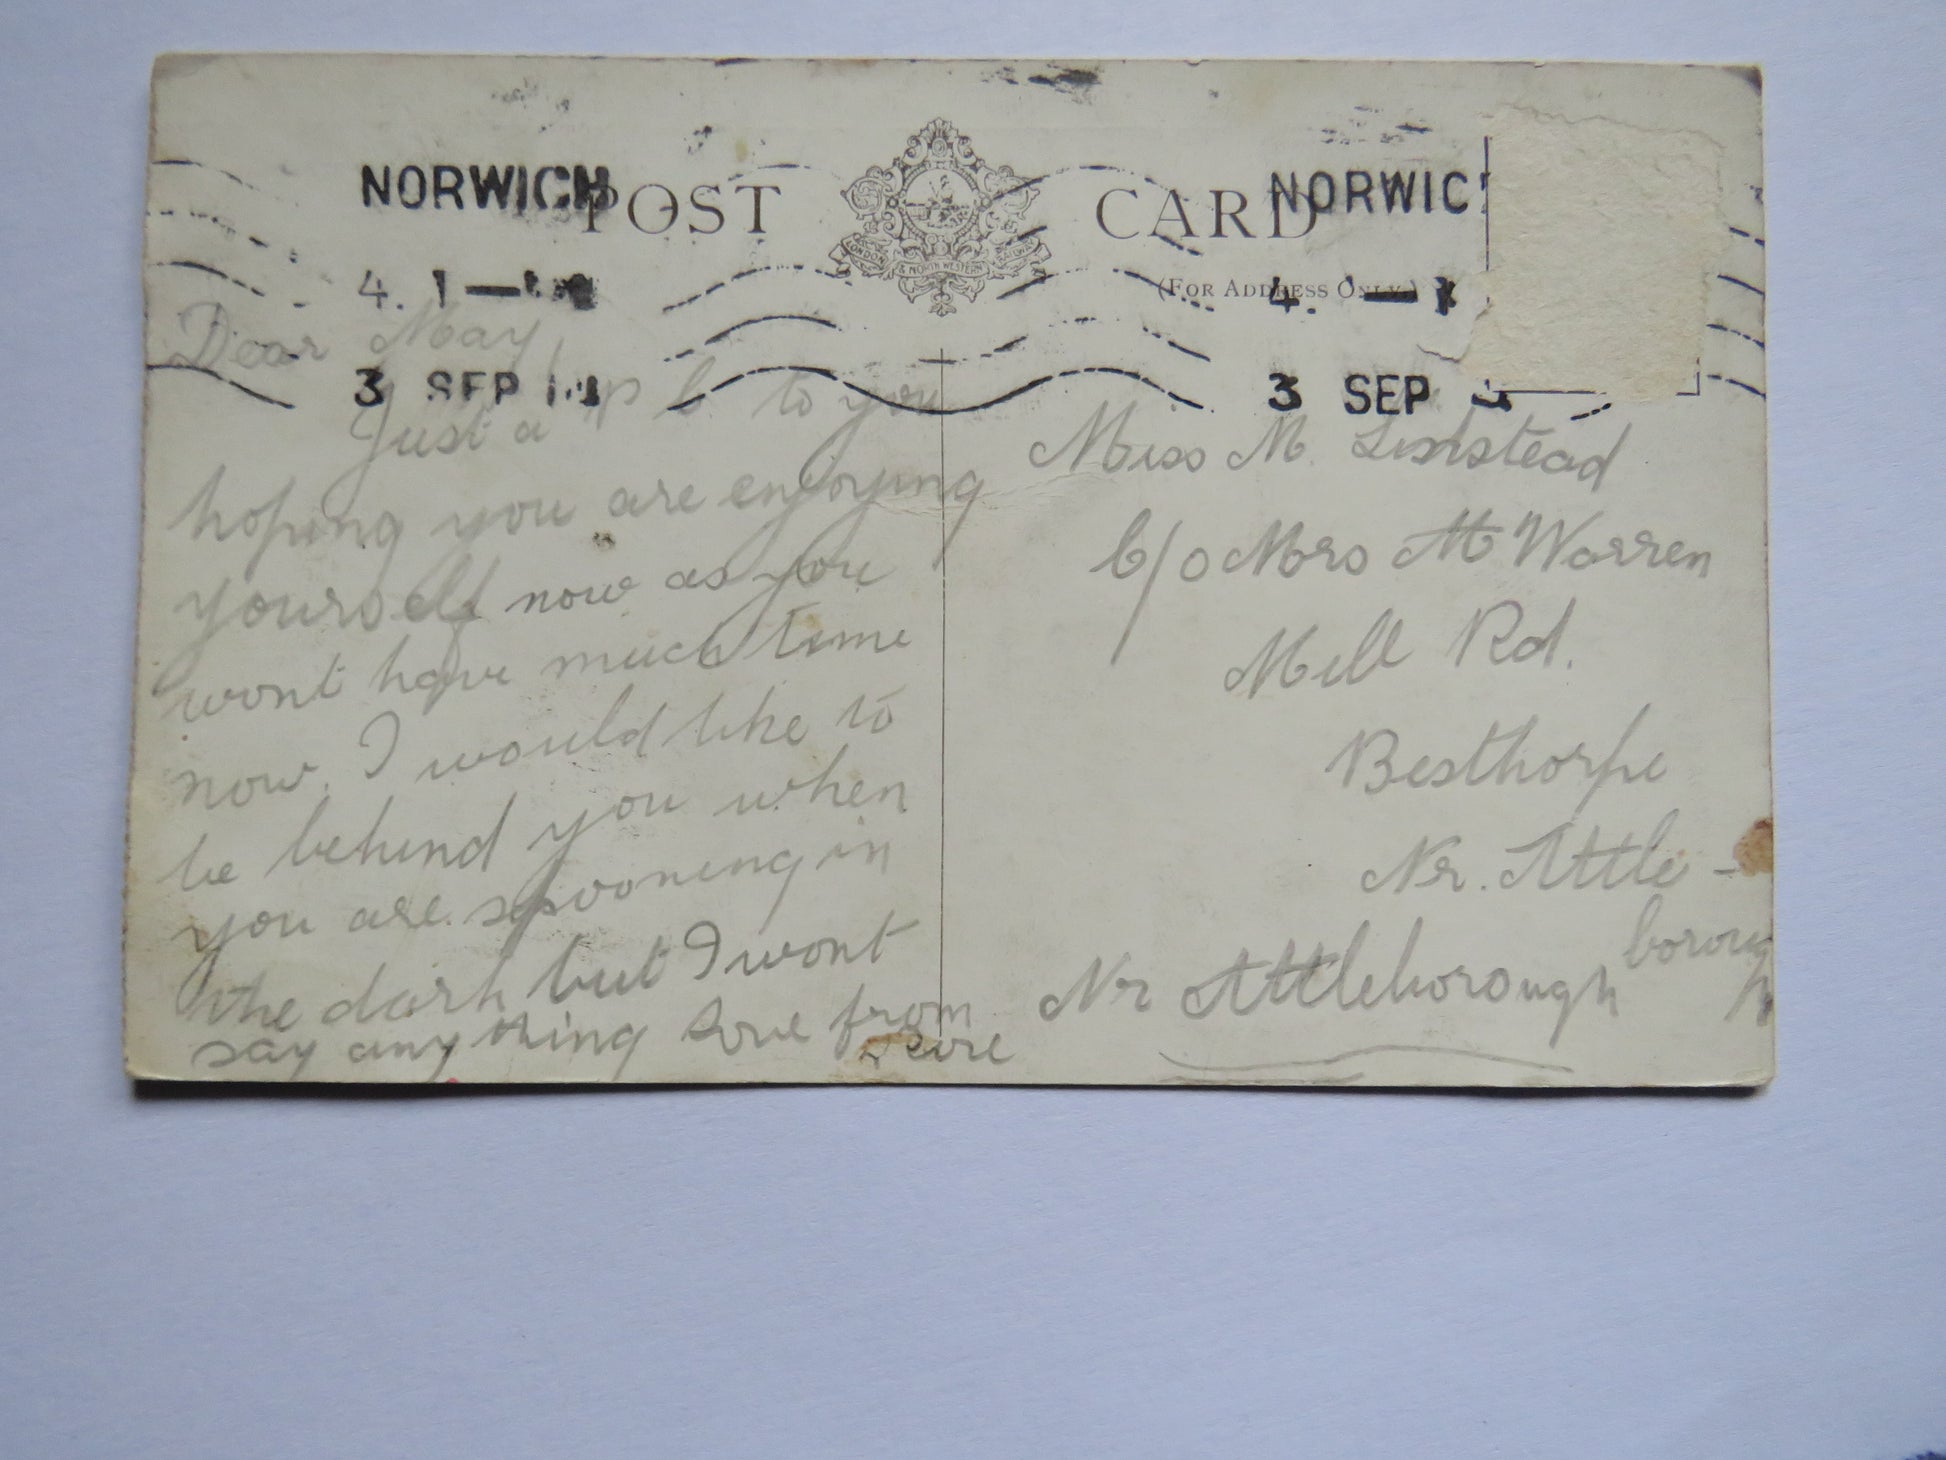 NORWICH
4. 1
3 SEP
POST CARD
LONDON & NORTH WESTERN RAILWAY
(FOR ADDRESS ONLY.)
NORWIC
4.
3 SEP
Dear May,
Just a p c to you
hoping you are enjoying
yourself now as you
wont have much time
now. I would like to
be behind you when
you are spooning in
the dark but I wont
say anything Love from
Miss M. Linstead
C/o Mrs M Warren
Mill Rd.
Besthorpe
Nr. Attle-
borough
Nr Attleborough